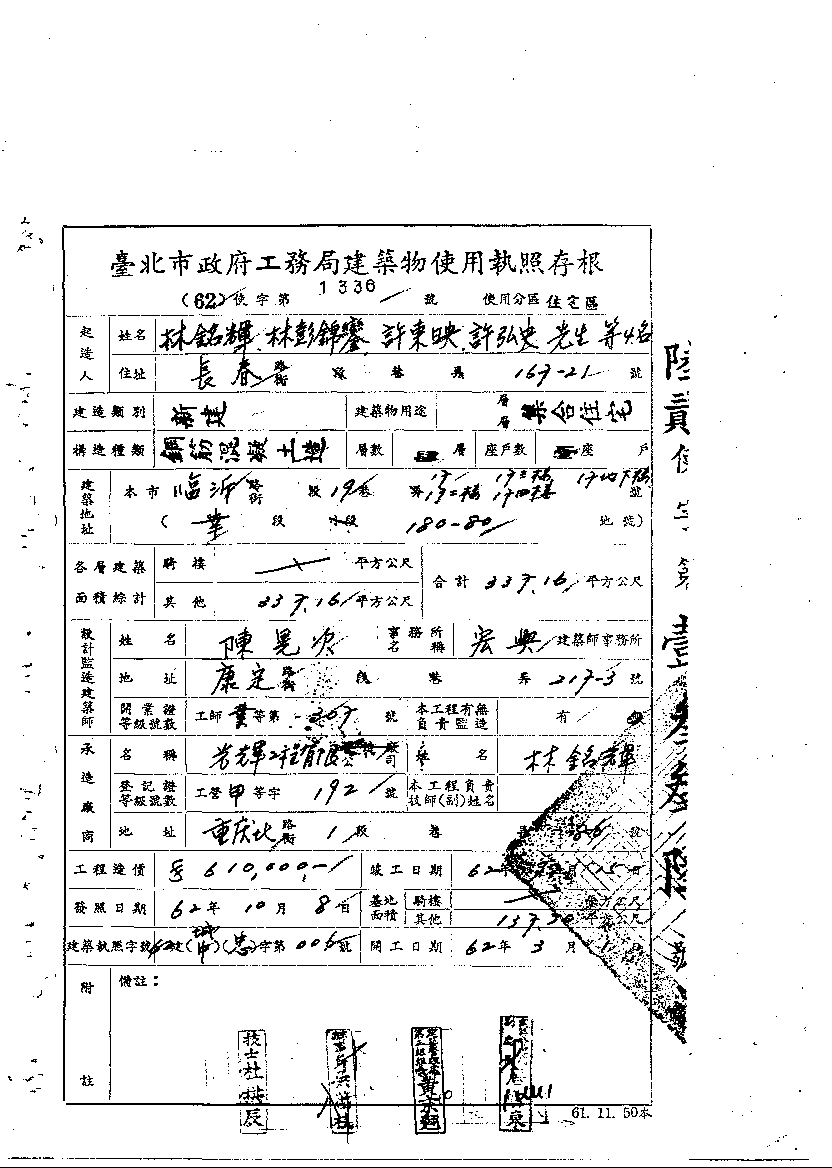 臺北市政府工務局建築物使用執照存根
(62)使字第 1336 號 使用分區 住宅區
起造人 姓名 林銘輝 林彭錦鑾 許東映 許弘史 先生 等4名
住址 長春 路街 段 巷 弄 167-21 號
建造類別 新建 建築物用途 層層 集合住宅
構造種類 鋼筋混凝土造 層數 層 座戶數 座 戶
建築地址 本市 臨沂 路街 段 19 巷 弄 號
( 段 小段 180-80 地號)
各層建築面積綜計 騎樓 平方公尺 合計 337.16 平方公尺
其他 337.16 平方公尺
設計監造建築師 姓名 陳晃次 事務所名稱 宏興 建築師事務所
地址 康定 路街 段 巷 弄 217-3 號
開業證等級號數 工師 等第 號 本工程有無負責監造 有
承造廠商 名稱 司 姓名 林銘輝
登記證等級號數 工營甲等字 192 號 本工程負責技師(副)姓名
地址 重庆北 路街 1 段 巷 號
工程造價 610,000.- 竣工日期 62年 月 15日
發照日期 62年 10月 8日 基地面積 騎樓 平方公尺
其他 平方公尺
建築執照字號 62建( )(忠)字第 006 號 開工日期 62年 3月 1日
附註 備註：
技士杜
61. 11. 50本
陸貳使字第壹叁叁陸號